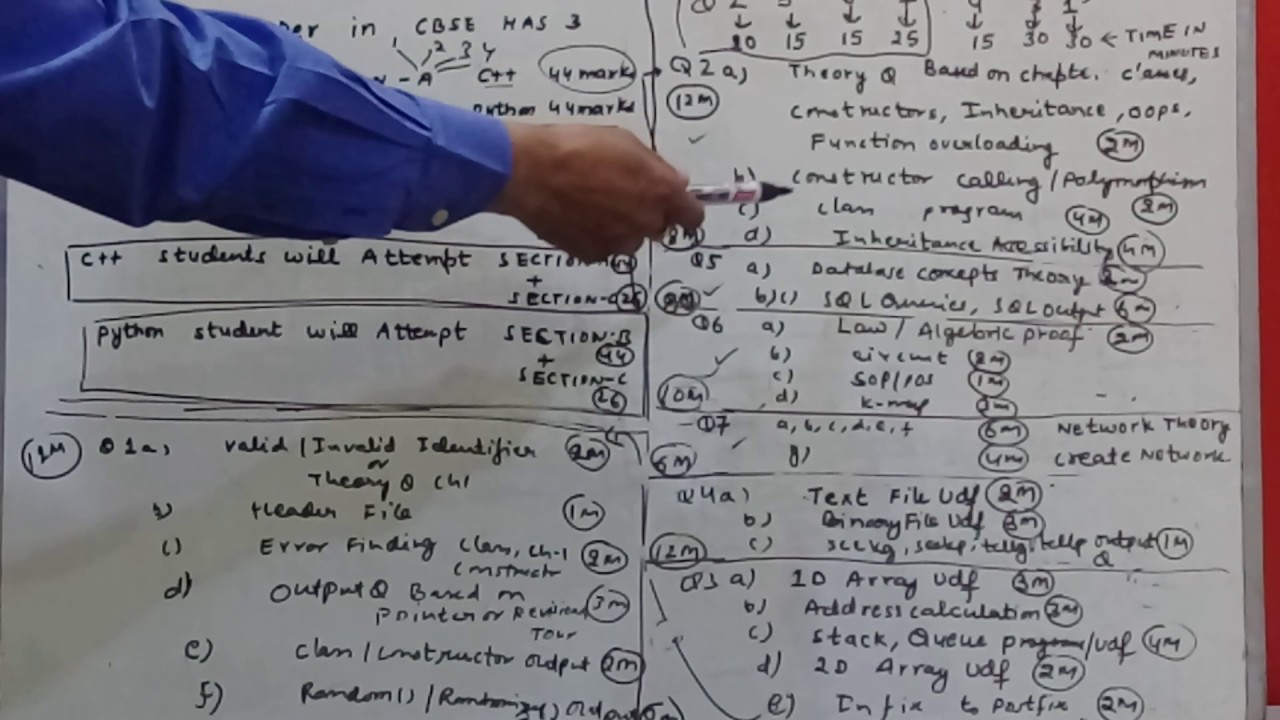 in CBSE HAS 3
1 2 3 4
A C++ 44 marks
Python 44 marks
C++ students will Attempt SECTION-A
+
SECTION-C 26
Python student will Attempt SECTION-B
+ 44
SECTION-C
26
12M Q1a) valid / Invalid Identifier 2M
or
Theory Q Ch1
b) Header File 1M
c) Error Finding Class, Ch-1 2M
construct
d) Output Q Based on
Pointer or Revision 3M
Tour
e) Class / Constructor output 2M
f) Random() /
10 15 15 25 15 30 30 ← TIME IN
MINUTES
Q2 a) Theory Q Based on chapte. c'asses,
12M constructors, Inheritance, oops,
Function overloading 2M
b) constructor calling / Polymorphism
c) class program 4M 2M
8M d) Inheritance Accessibility 4M
Q5 a) Database concepts Theory 2M
8M b)c) SQL Queries, SQL output 6M
Q6 a) Law / Algebric proof 2M
b) circuit 2M
c) SOP/POS 1M
10M d) K-map
Q7 a, b, c, d, e, f 6M Network Theory
g) 4M Create Network
Q4a) Text File Udf 2M
b) Binary File Udf 3M
12M c) seekg, seekp, tellg, tellp output 1M
Q
Q3 a) 1D Array Udf 3M
b) Address calculation 3M
c) Stack, Queue program/udf 4M
d) 2D Array Udf 2M
e) Infix to postfix 2M